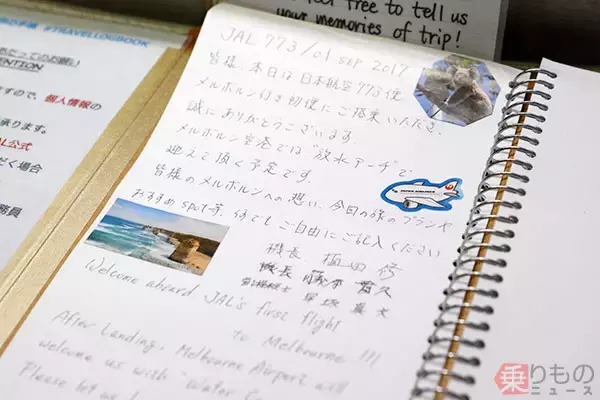 feel free to tell us
your memories of trip!
#TRAVELLOGBOOK
NTION
個人情報の
承ります。
公式
だく場合
務員
JAL 773/01 SEP 2017
皆様、本日は日本航空773便
メルボルン行き初便にご搭乗いただき、
誠にありがとうございます。
メルボルン空港では"放水アーチ"で
迎えて頂く予定です。
皆様のメルボルンへの想い、今回の旅のプランや
おすすめspot等、何でもご自由にご記入ください
JAPAN AIRLINES
機長 植田 修
機長
Welcome aboard JAL's first flight
to Melbourne !!!
After Landing, Melbourne Airport will
welcome us with "Water
Please let
乗りもの
ニュース